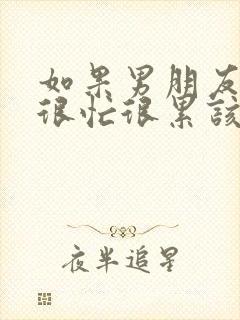 如果男朋友
很忙很累該
夜半追星